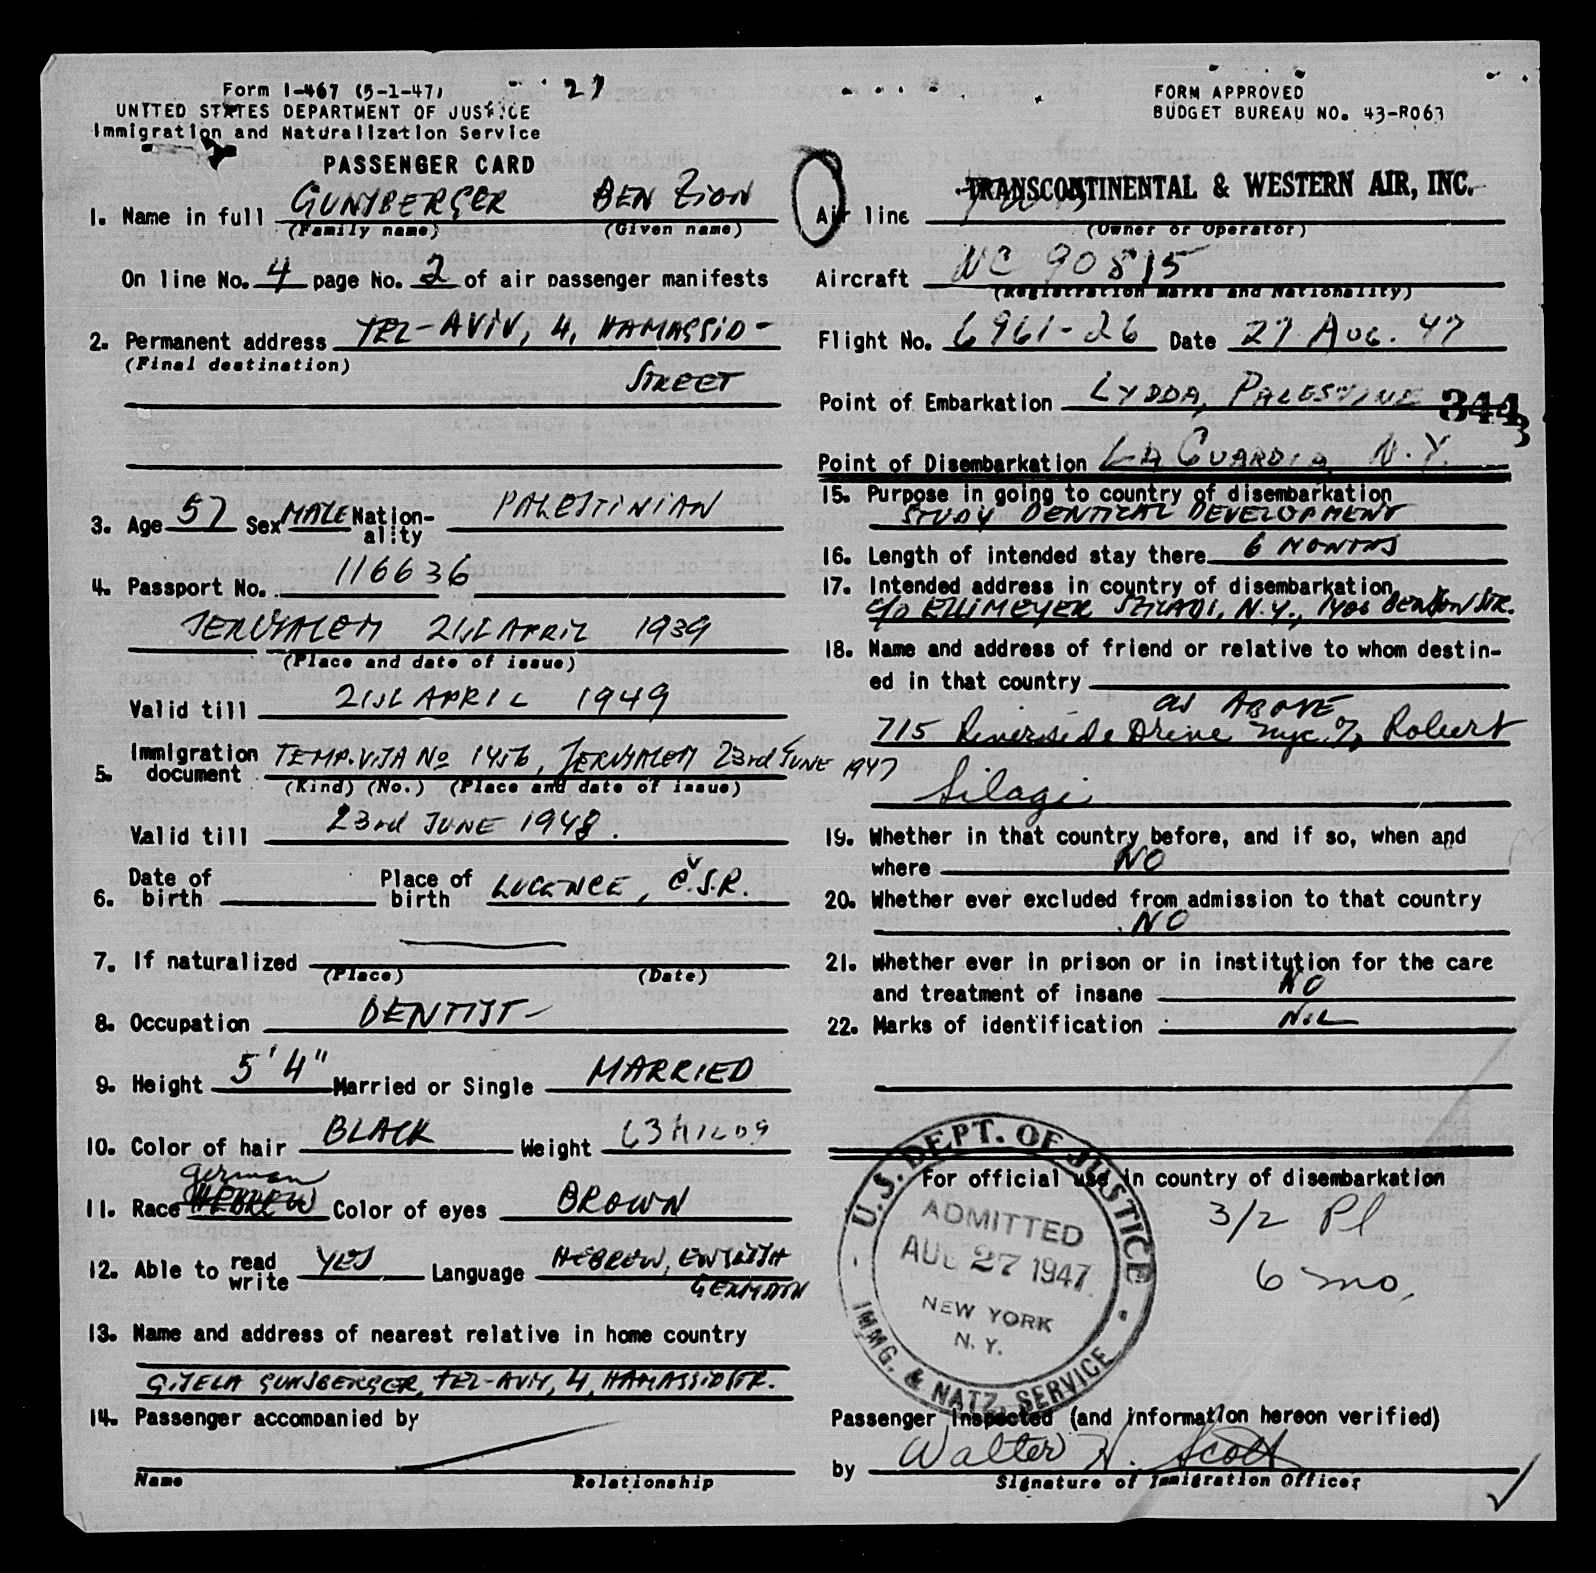 Form I-467 (5-1-47)
27
UNITED STATES DEPARTMENT OF JUSTICE
Immigration and Naturalization Service
PASSENGER CARD
1. Name in full GUNSBERGER BEN ZION
(Family name) (Given name)
On line No. 4 page No. 2 of air passenger manifests
2. Permanent address TEL-AVIV, 4, HAMASSID-
(Final destination)
STREET
3. Age 57 Sex MALE Nation-ality PALESTINIAN
4. Passport No. 116636
JERUSALEM 21st APRIL 1939
(Place and date of issue)
Valid till 21st APRIL 1949
5. Immigration document TEMP. VISA No 1456, JERUSALEM 23rd JUNE 1947
(Kind) (No.) (Place and date of issue)
Valid till 23rd JUNE 1948.
6. Date of birth Place of birth LUCENCE, Č.S.R.
7. If naturalized
(Place) (Date)
8. Occupation DENTIST-
9. Height 5'4" Married or Single MARRIED
10. Color of hair BLACK Weight 63 KILOS
German
11. Race HEBREW Color of eyes BROWN
12. Able to read write YES Language HEBREW, ENGLISH
GERMAN
13. Name and address of nearest relative in home country
GISELA GUNSBERGER, TEL-AVIV, 4, HAMASSID STR.
14. Passenger accompanied by
Name Relationship
FORM APPROVED
BUDGET BUREAU NO. 43-R063
TRANSCONTINENTAL & WESTERN AIR, INC.
Air line
(Owner or Operator)
Aircraft NC 90815
(Registration marks and Nationality)
Flight No. 6961-26 Date 27 AUG. 47
Point of Embarkation LYDDA, PALESTINE
344
3
Point of Disembarkation LA GUARDIA, N.Y.
15. Purpose in going to country of disembarkation
STUDY DENTICAL DEVELOPMENT
16. Length of intended stay there 6 MONTHS
17. Intended address in country of disembarkation
c/o ELLIMEYER SZILADI, N.Y., 1406 STR.
18. Name and address of friend or relative to whom destin-
ed in that country
as ABOVE
715 Riverside Drive nyc % Robert
Silagi
19. Whether in that country before, and if so, when and
where NO
20. Whether ever excluded from admission to that country
NO
21. Whether ever in prison or in institution for the care
and treatment of insane NO
22. Marks of identification NIL
For official use in country of disembarkation
3/2 Pl
6 mo.
U.S. DEPT. OF JUSTICE
ADMITTED
AUG 27 1947
NEW YORK
N.Y.
IMMG. & NATZ. SERVICE
Passenger Inspected (and information hereon verified)
by Walter H. Scott
Signature of Immigration Officer